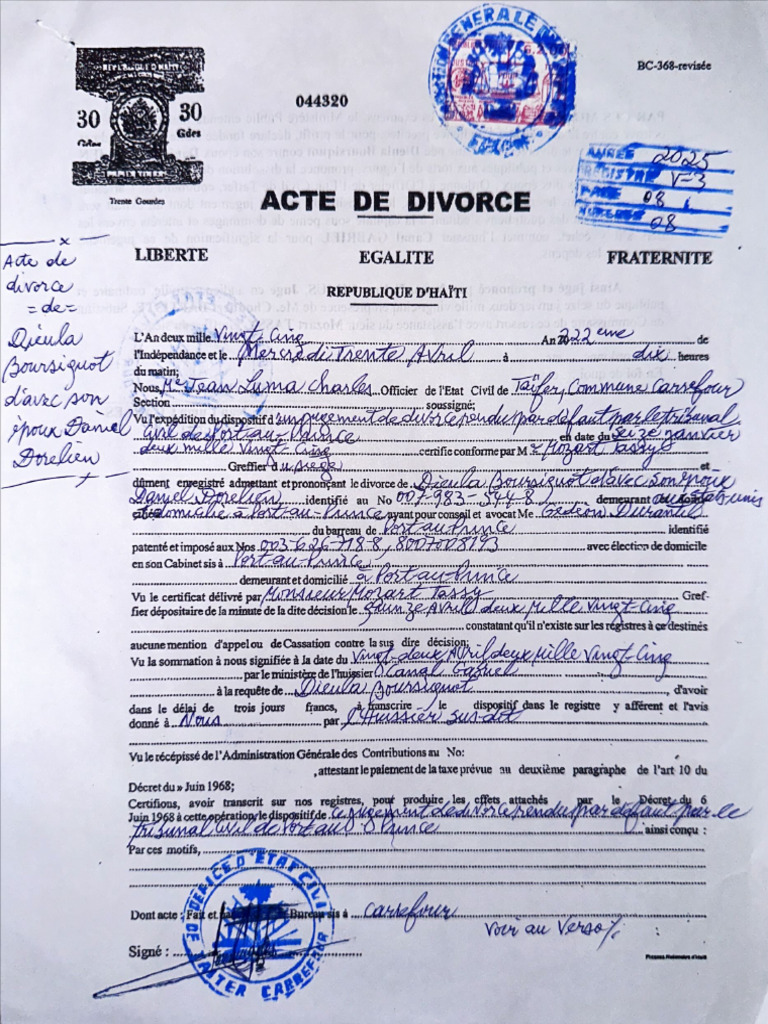 BC-368-revisée
044320
30
30
Gdes
Gdes
Trente Gourdes
ANNEE 2025
REGISTRE V-3
PAGE 08
NUMERO 08
ACTE DE DIVORCE
LIBERTE EGALITE FRATERNITE
REPUBLIQUE D'HAÏTI
Acte de
divorce
=de=
Dieula
Boursiquot
d'avec son
époux Daniel
Dorelien
L'An deux mille Vingt-Cinq An 222ème de
l'Indépendance et le Mercredi Trente Avril à dix heures
du matin;
Nous, Me Jean Luma Charles Officier de l'Etat Civil de Taïfer, Commune Carrefour
Section soussigné;
Vu l'expédition du dispositif d'un jugement de divorce rendu par défaut par le tribunal
Civil de Port-au-Prince en date du Seize janvier
deux mille Vingt-Cinq certifie conforme par Me Mozart Tassy
Greffier du siège et
dûment enregistré admettant et prononçant le divorce de Dieula Boursiquot d'avec son époux
Daniel Dorelien identifié au No 007-983-544-8, demeurant aux Etats unis
et domicilié à Port-au-Prince ayant pour conseil et avocat Me Gédéon Durantel
du barreau de Port-au-Prince identifié
patenté et imposé aux Nos 003-626-718-8, 8007008193 avec élection de domicile
en son Cabinet sis à Port-au-Prince
demeurant et domicilié à Port-au-Prince
Vu le certificat délivré par Monsieur Mozart Tassy Gref-
fier dépositaire de la minute de la dite décision le quinze Avril deux Mille Vingt-Cinq
constatant qu'il n'existe sur les régistres à ce destinés
aucune mention d'appel ou de Cassation contre la sus dire décision;
Vu la sommation à nous signifiée à la date du Vingt-deux Avril deux Mille Vingt-Cinq
par le ministère de l'huissier Canal Gabriel
à la requête de Dieula Boursiquot, d'avoir
dans le délai de trois jours francs, à transcrire le dispositif dans le registre y afférent et l'avis
donné à Nous par l'Huissier sus-dit
Vu le récépissé de l'Administration Générale des Contributions au No:
, attestant le paiement de la taxe prévue au deuxième paragraphe de l'art 10 du
Décret du » Juin 1968;
Certifions, avoir transcrit sur nos registres, pour produire les effets attachés par le Décret du 6
Juin 1968 à cette opération, le dispositif de ce jugement de divorce rendu par défaut par le
tribunal Civil de Port-au-Prince ainsi conçu :
Par ces motifs,
Dont acte : Fait et Bureau sis à Carrefour
Voir au Verso/.
Signé :
OFFICE D'ETAT CIVIL
CARREFOUR
Presses Nationales d'Haïti